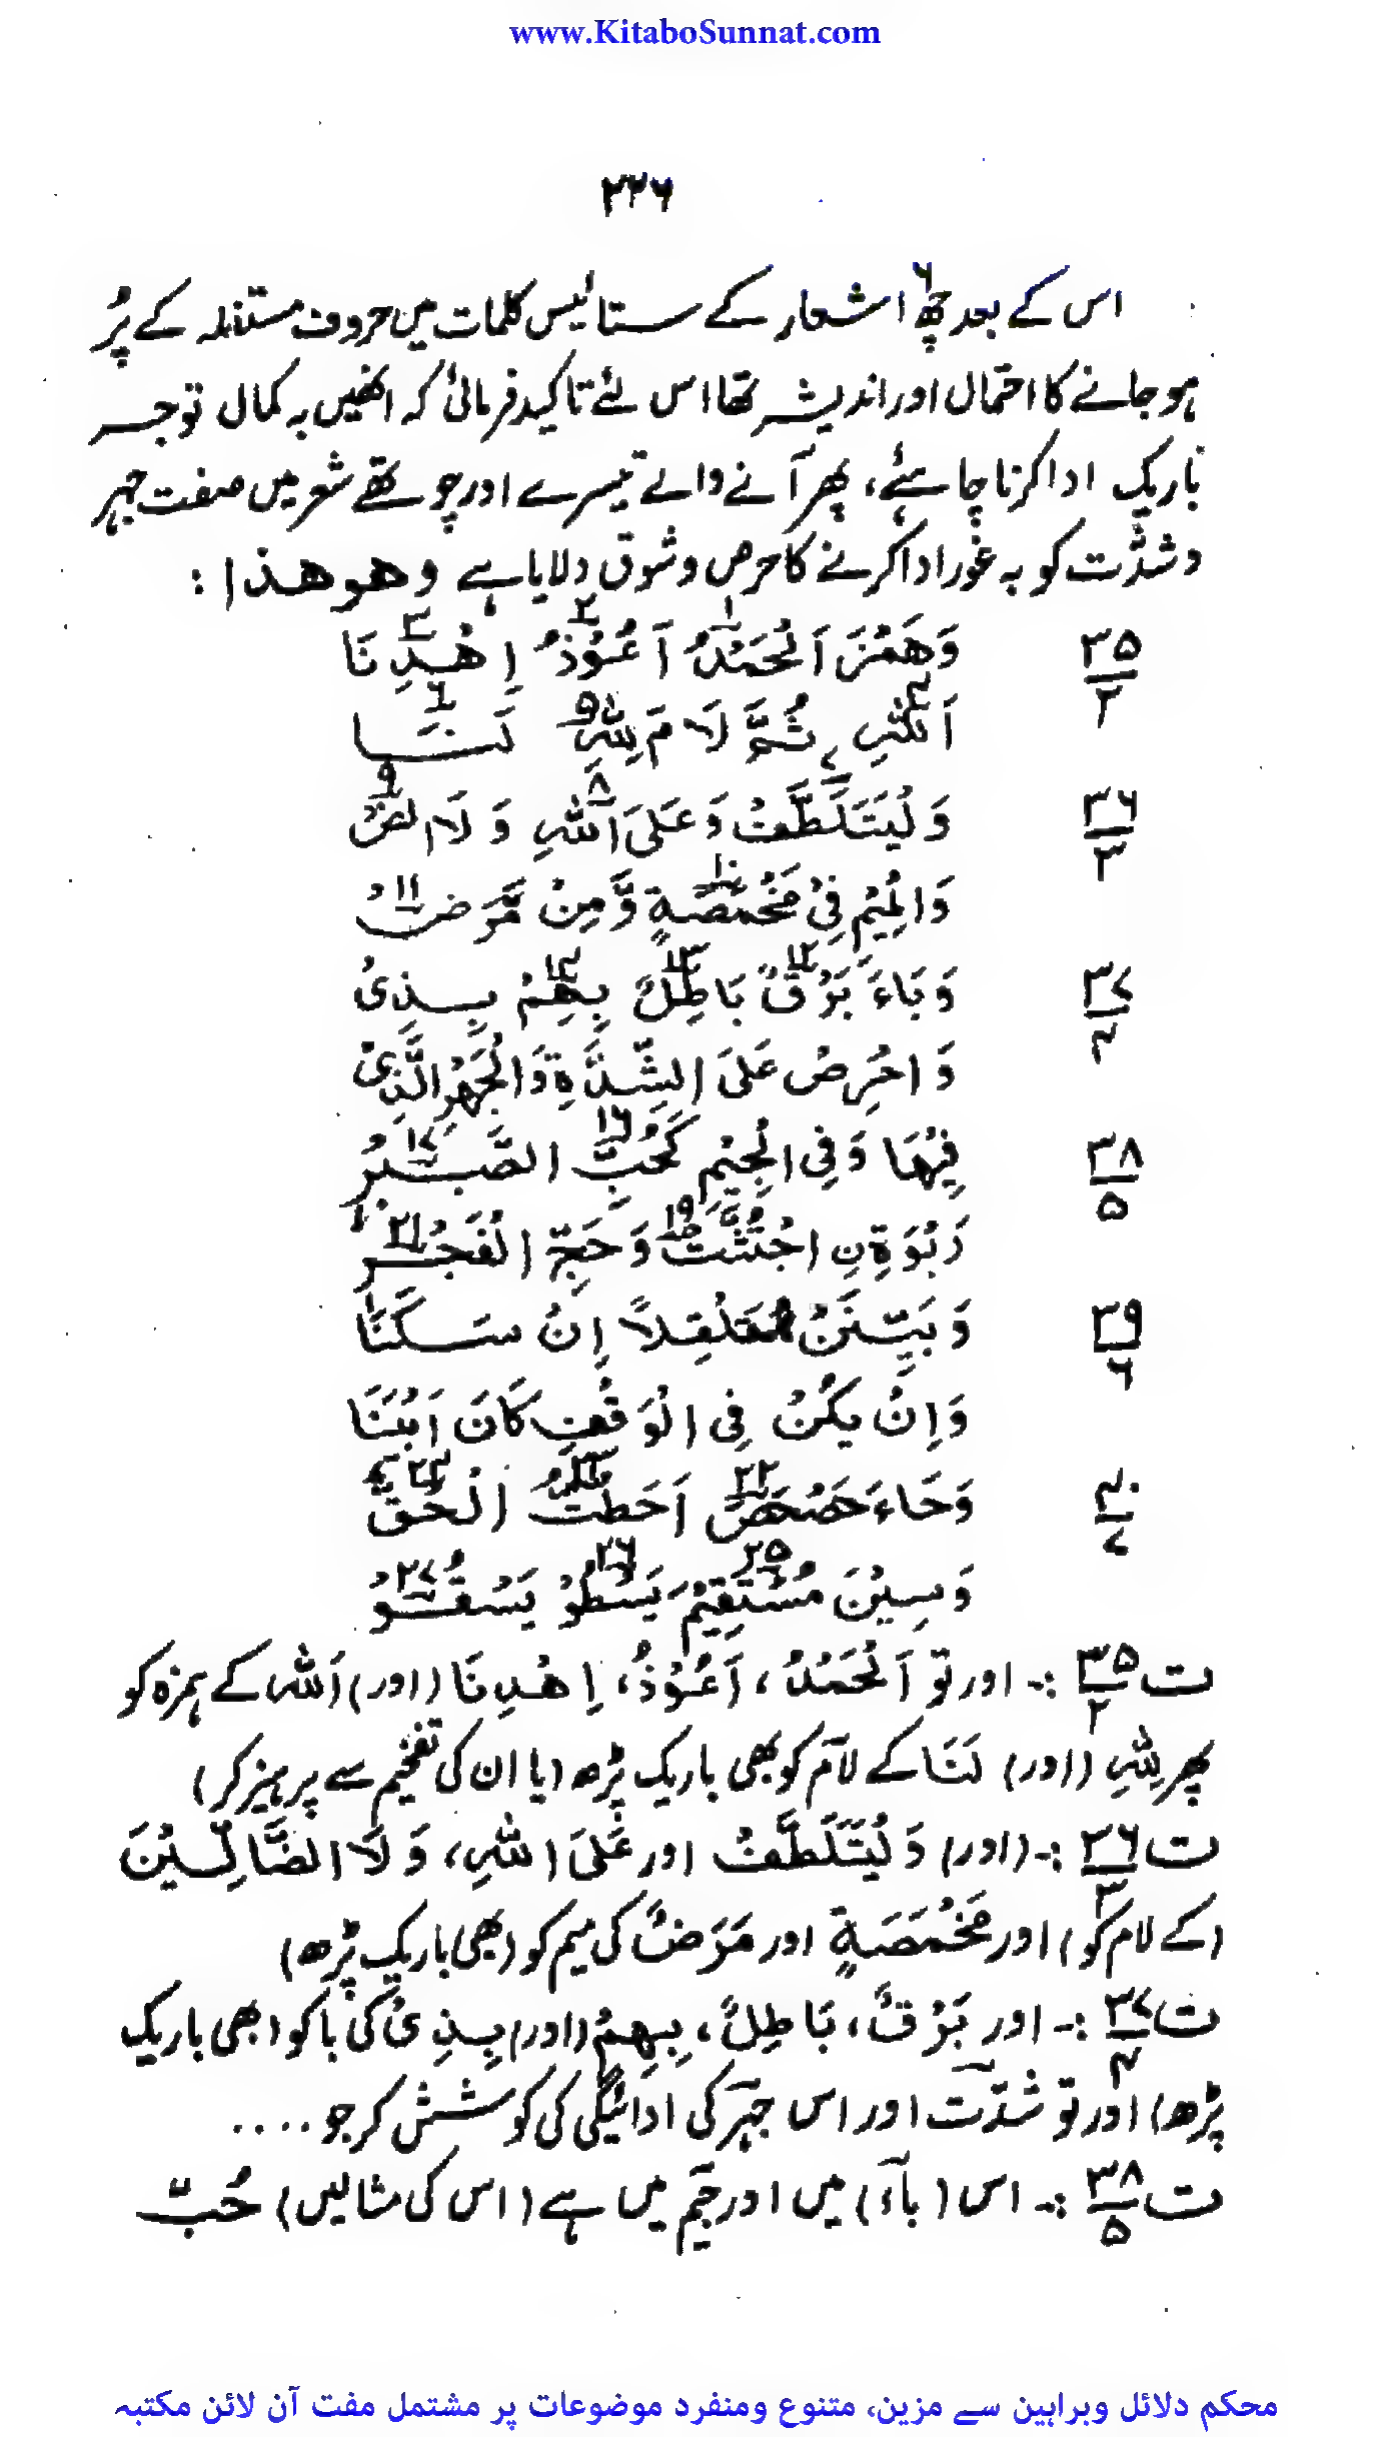 www.KitaboSunnat.com
۲۲۶
اس کے بعد چھ۶ اشعار کے ستائیس کلمات میں حروف مستفلہ کے پُر
ہو جانے کا احتمال اور اندیشہ تھا اس لئے تاکید فرمائی کہ انھیں بہ کمال توجہ
باریک ادا کرنا چاہئے، پھر آنے والے تیسرے اور چوتھے شعر میں صفت جہر
و شدّت کو بہ غور ادا کرنے کا حرص و شوق دلایا ہے وھو ھذا:
۳۵/۲ وَهَمْزَ اَلْحَمْدُ۱ اَعُوْذُ۲ اِهْدِنَا۳
اَللّٰهِ۴ ثُمَّ لَامَ لِلّٰهِ۵ لَنَا۶
۳۶/۳ وَلْيَتَلَطَّفْ۷ وَعَلَى اللّٰهِ۸ وَلَا الضْ۹
وَالْمِيْمِ فِيْ مَخْمَصَةٍ۱۰ وَّمِنْ مَّرَضْ۱۱
۳۷/۴ وَبَاءَ بَرْقٌ۱۲ بَاطِلٌ۱۳ بِهِمْ۱۴ بِذِيْ
وَاحْرِصْ عَلَى الشِّدَّةِ وَالْجَهْرِ الَّذِيْ
۳۸/۵ فِيْهَا وَفِي الْجِيْمِ كَحُبِّ۱۶ الصَّبْرِ۱۷
رَبْوَةِنِ اجْتُثَّتْ۱۹ وَحَجِّ الْفَجْرِ۲۱
۳۹/۶ وَبَيِّنَنْ مُقَلْقِلًا اِنْ سَكَنَا
وَاِنْ يَكُنْ فِي الْوَقْفِ كَانَ اَبْيَنَا
۴۰/۷ وَحَاءَ حَصْحَصَ۲۲ اَحَطْتُ۲۳ الْحَقُّ۲۴
وَسِيْنَ مُسْتَقِيْمِ۲۵ يَسْطُوْ۲۶ يَسْقُوْ۲۷
ت ۳۵/۲ :۔ اور تو اَلْحَمْدُ، اَعُوْذُ، اِهْدِنَا (اور) اَللّٰه کے ہمزہ کو
پھر لِلّٰهِ (اور) لَنَا کے لام کو بھی باریک پڑھ (یا ان کی تفخیم سے پرہیز کر)
ت ۳۶/۳ :۔ (اور) وَلْيَتَلَطَّفْ اور عَلَى اللّٰهِ، وَلَا الضَّالِّيْنَ
(کے لام کو) اور مَخْمَصَةٍ اور مَرَضٌ کی میم کو (بھی باریک پڑھ)
ت ۳۷/۴ :۔ اور بَرْقٌ، بَاطِلٌ، بِهِمْ (اور) بِذِيْ کی با کو (بھی باریک
پڑھ) اور تو شدّت اور اس جہر کی ادائیگی کی کوشش کر جو ....
ت ۳۸/۵ :۔ اس (بآء) میں اور جیم میں ہے (اس کی مثالیں) حُبِّ
محکم دلائل وبراہین سے مزین، متنوع ومنفرد موضوعات پر مشتمل مفت آن لائن مکتبہ